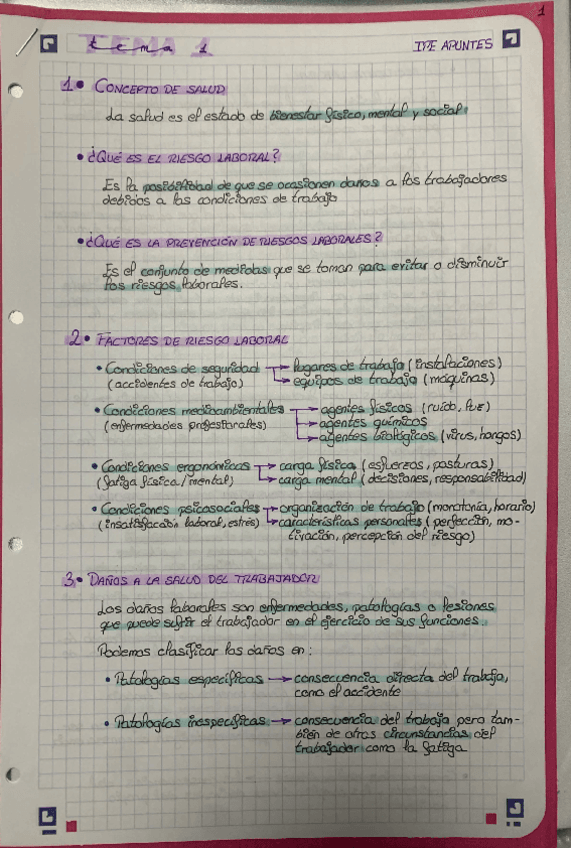 1
tema 1
IPE APUNTES
1• CONCEPTO DE SALUD
La salud es el estado de bienestar físico, mental y social.
• ¿QUÉ ES EL RIESGO LABORAL?
Es la posibilidad de que se ocasionen daños a los trabajadores
debidos a las condiciones de trabajo
• ¿QUÉ ES LA PREVENCIÓN DE RIESGOS LABORALES?
Es el conjunto de medidas que se toman para evitar o disminuir
los riesgos laborales.
2• FACTORES DE RIESGO LABORAL
• Condiciones de seguridad → lugares de trabajo (instalaciones)
(accidentes de trabajo) → equipos de trabajo (máquinas)
• Condiciones medioambientales → agentes físicos (ruido, luz)
(enfermedades profesionales) → agentes químicos
→ agentes biológicos (virus, hongos)
• Condiciones ergonómicas → carga física (esfuerzos, posturas)
(fatiga física/mental) → carga mental (decisiones, responsabilidad)
• Condiciones psicosociales → organización de trabajo (monotonía, horario)
(insatisfacción laboral, estrés) → características personales (perfección, mo-
tivación, percepción del riesgo)
3• DAÑOS A LA SALUD DEL TRABAJADOR
Los daños laborales son enfermedades, patologías o lesiones
que puede sufrir el trabajador en el ejercicio de sus funciones.
Podemos clasificar los daños en:
• Patologías específicas → consecuencia directa del trabajo,
como el accidente
• Patologías inespecíficas → consecuencia del trabajo pero tam-
bién de otras circunstancias del
trabajador como la fatiga